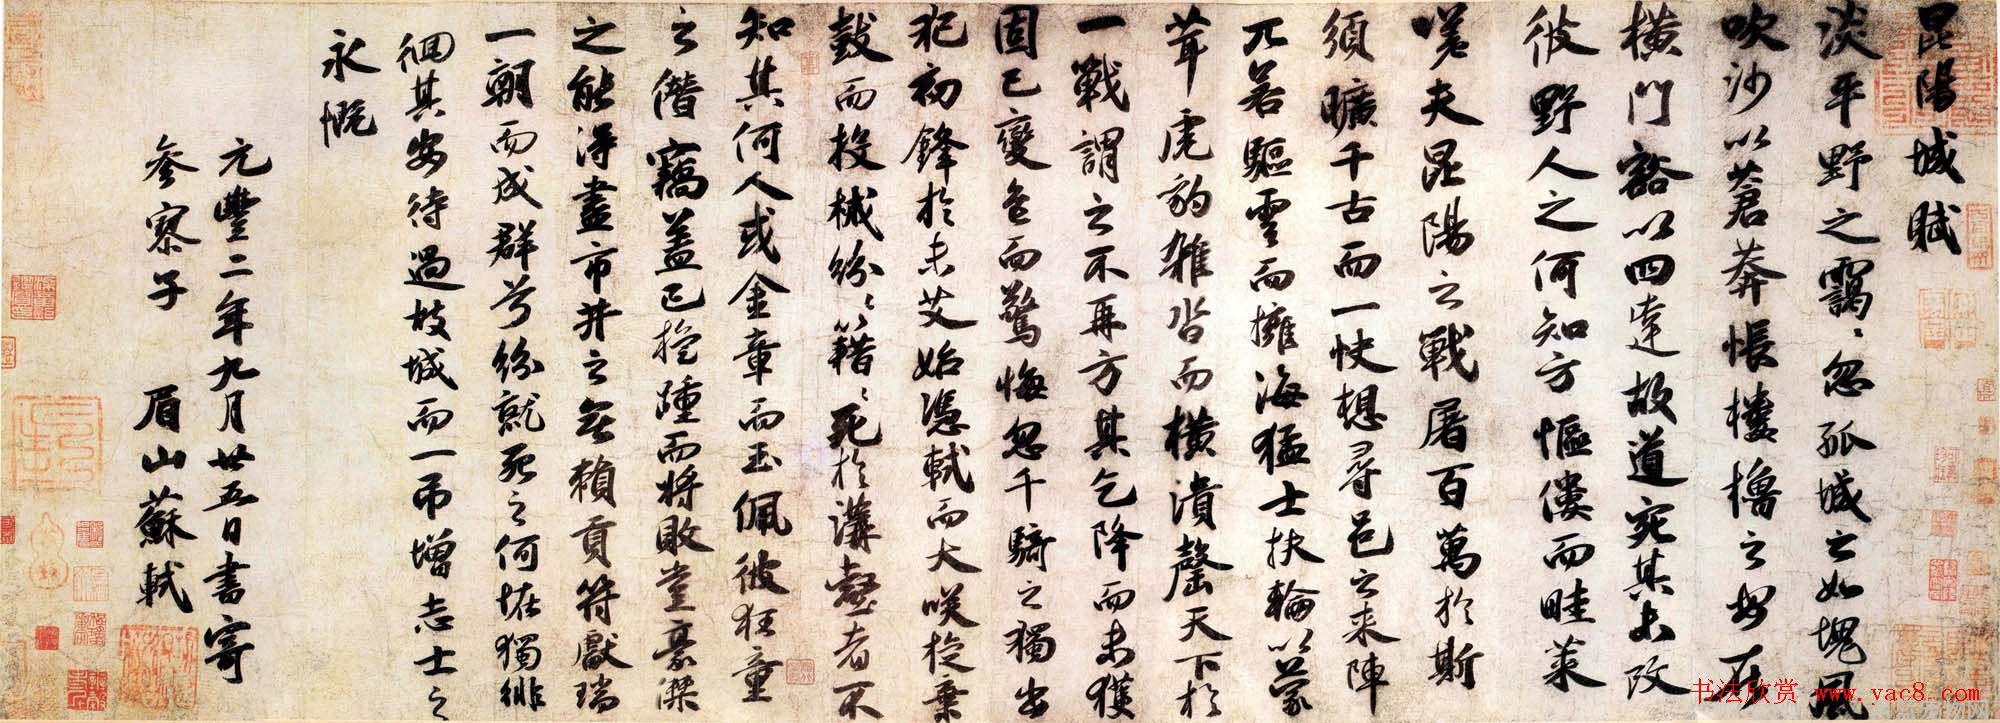 昆陽城賦
淡平野之靄靄忽孤城之如塊風
吹沙以蒼莽悵樓櫓之安在
橫門豁以四達故道宛其未改
彼野人之何知方傴僂而畦菜
嗟夫昆陽之戰屠百萬於斯
須曠千古而一快想尋邑之來陣
兀若驅雲而擁海猛士扶輪以蒙
茸虎豹雜沓而橫潰罄天下於
一戰謂之不再方其乞降而未獲
固已變色而驚悔忽千騎之獨出
犯初鋒於未艾始憑軾而大笑旋棄
鼓而投械紛紛籍籍死於溝壑者不
知其何人或金章而玉佩彼狂童
之僭竊蓋已旋踵而將敗豈豪傑
之能得盡市井之無賴貢符獻瑞
一朝而成群兮紛就死之何怪獨徘
徊其安待過故城而一弔增志士之
永慨
元豐二年九月廿五日書寄
參寥子 眉山蘇軾
书法欣赏 www.yac8.com